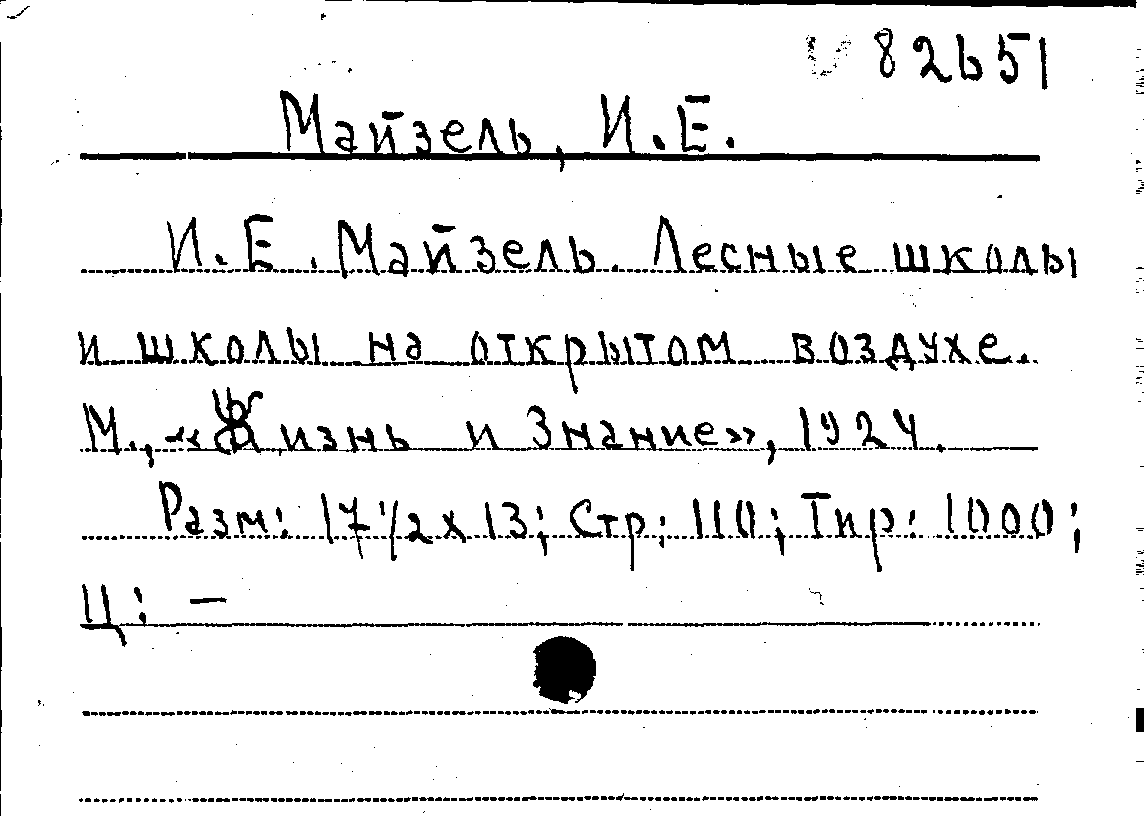 82651
Майзель, И.Е.
И.Е. Майзель. Лесные школы
и школы на открытом воздухе.
М., «Жизнь и Знание», 1924.
Разм: 17 1/2 х 13; Стр: 110; Тир: 1000;
Ц: —